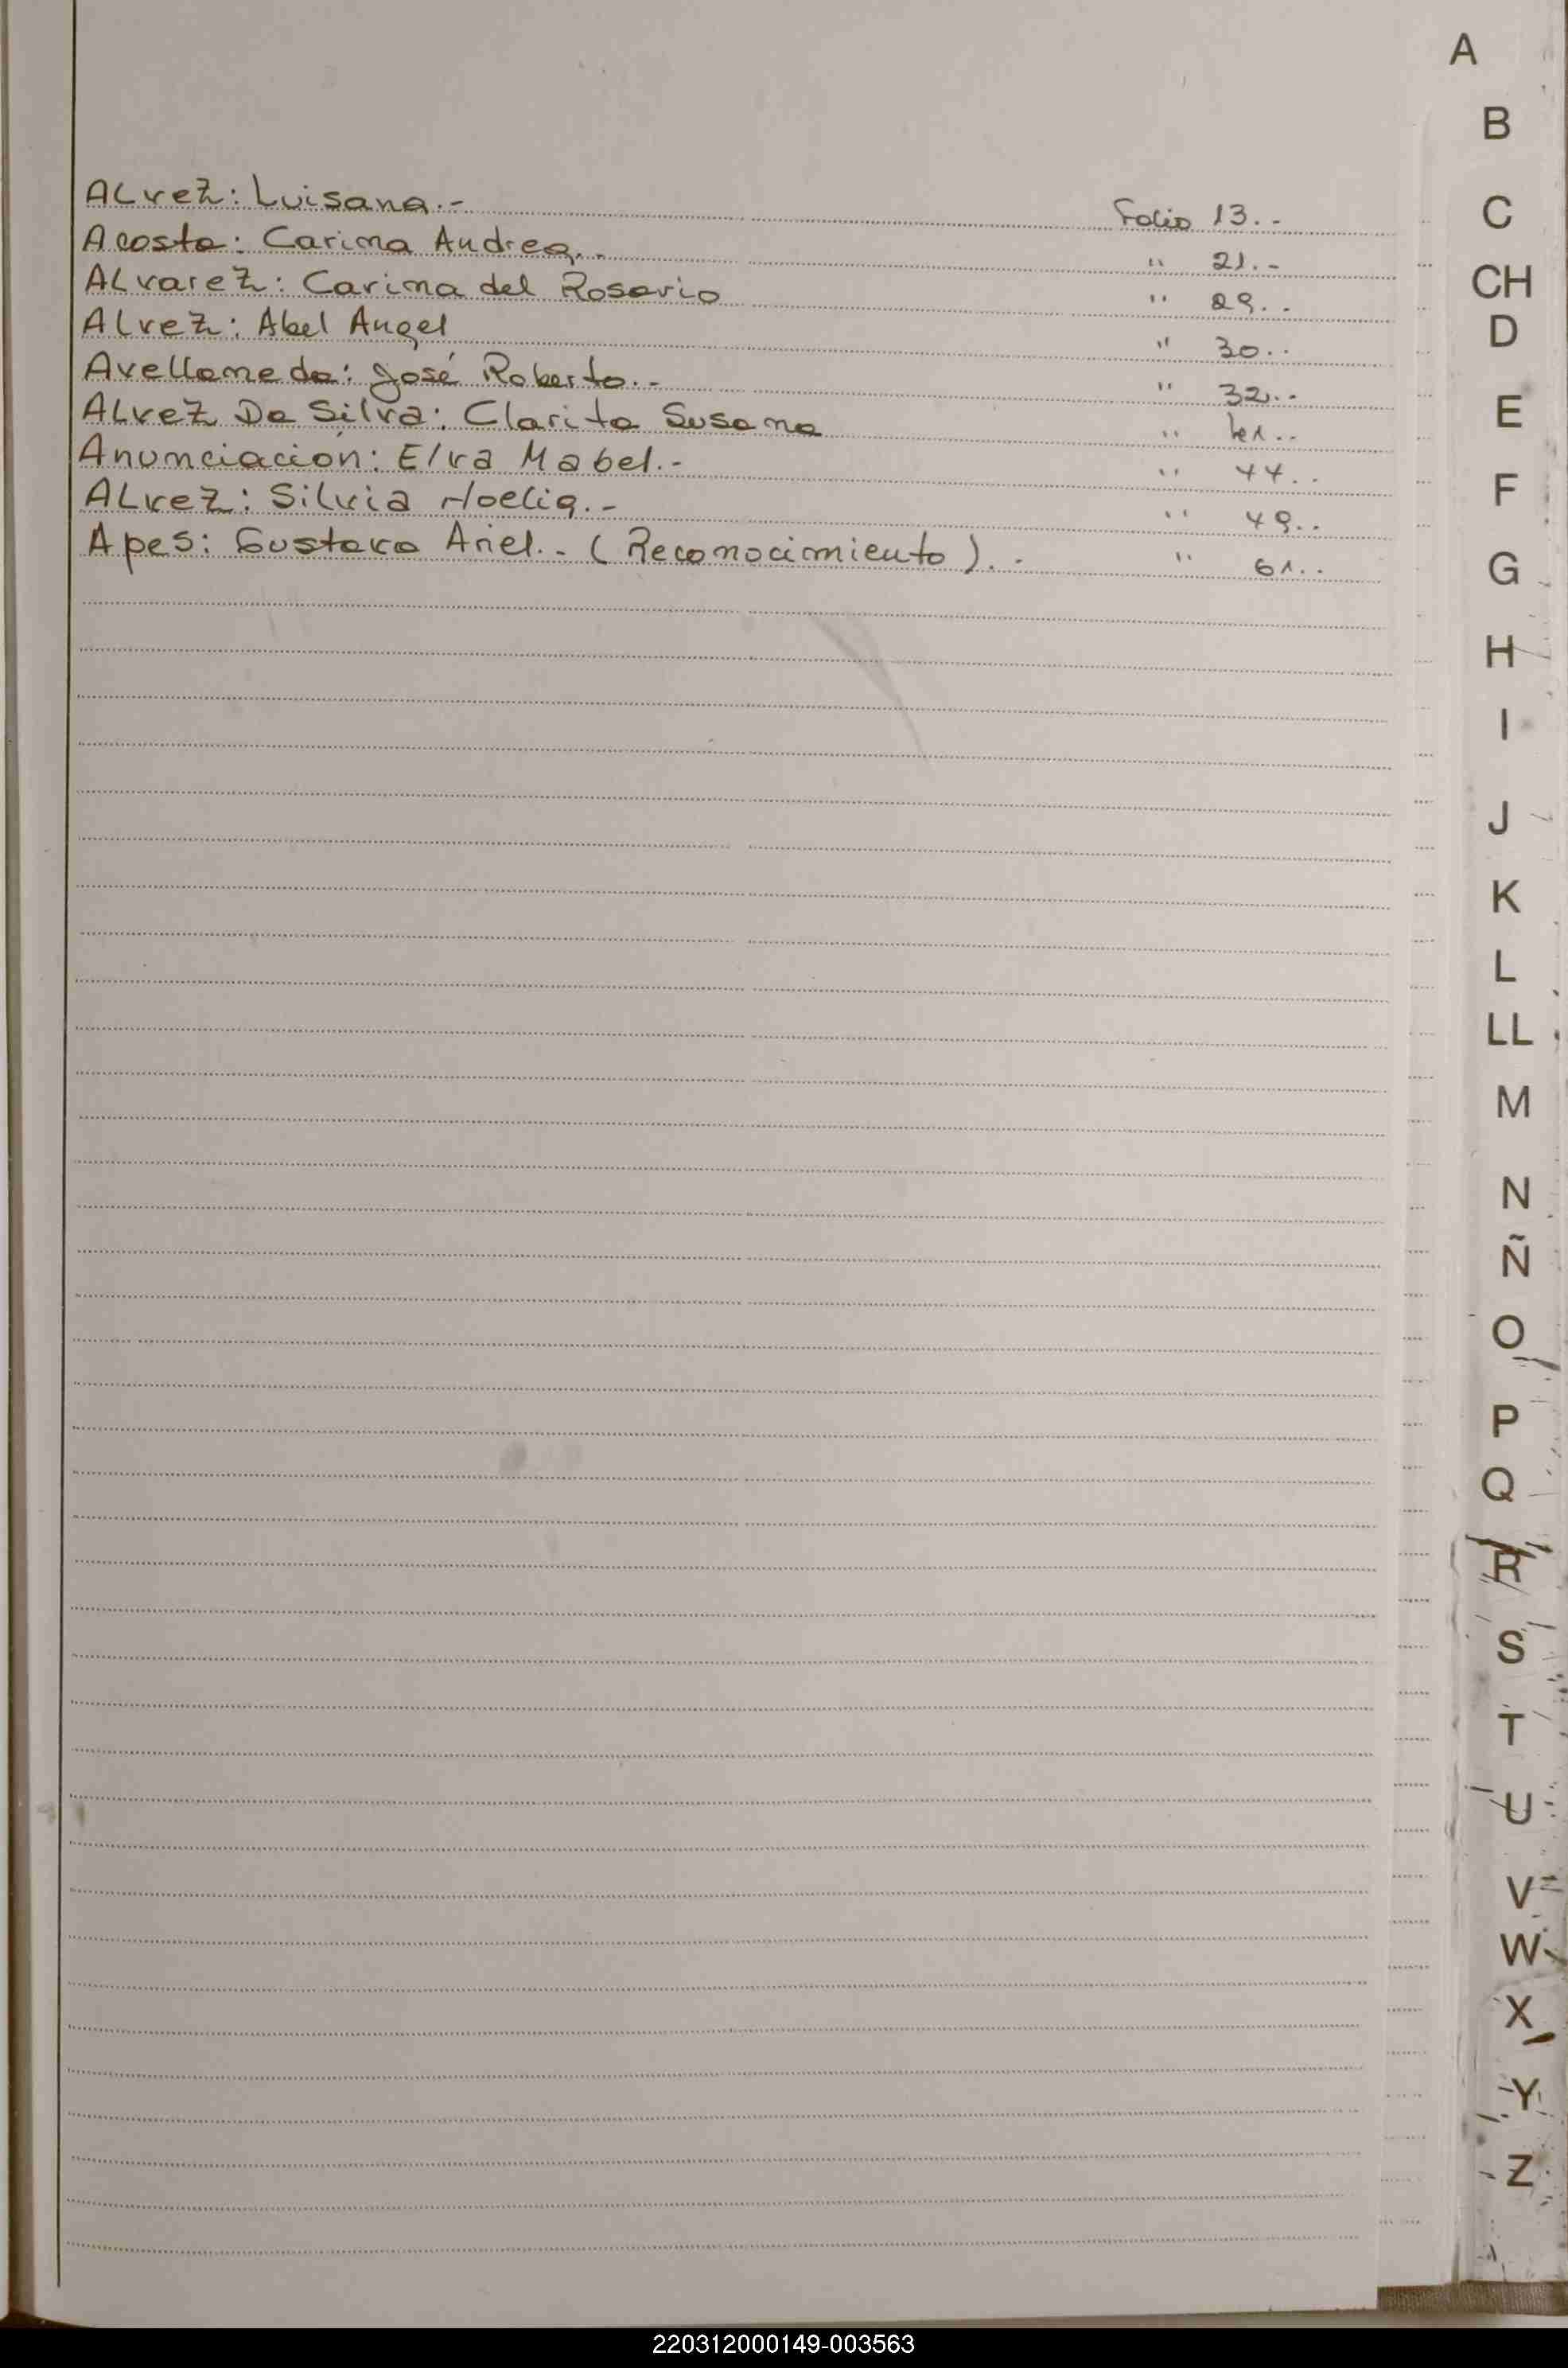 A
B
C
CH
D
E
F
G
H
I
J
K
L
LL
M
N
Ñ
O
P
Q
R
S
T
U
V
W
X
Y
Z
ALvez: Luisana.- Folio 13.-
Acosta: Carina Andrea.- " 21.-
ALvarez: Carina del Rosario " 29.-
ALvez: Abel Angel " 30.-
Avellaneda: José Roberto.- " 32.-
ALvez Da Silva: Clarita Susana "
Anunciación: Elva Mabel.- " 44.-
ALvez: Silvia Noelia.- " 49.-
Apes: Gustavo Ariel.- (Reconocimiento).- " 61.-
220312000149-003563